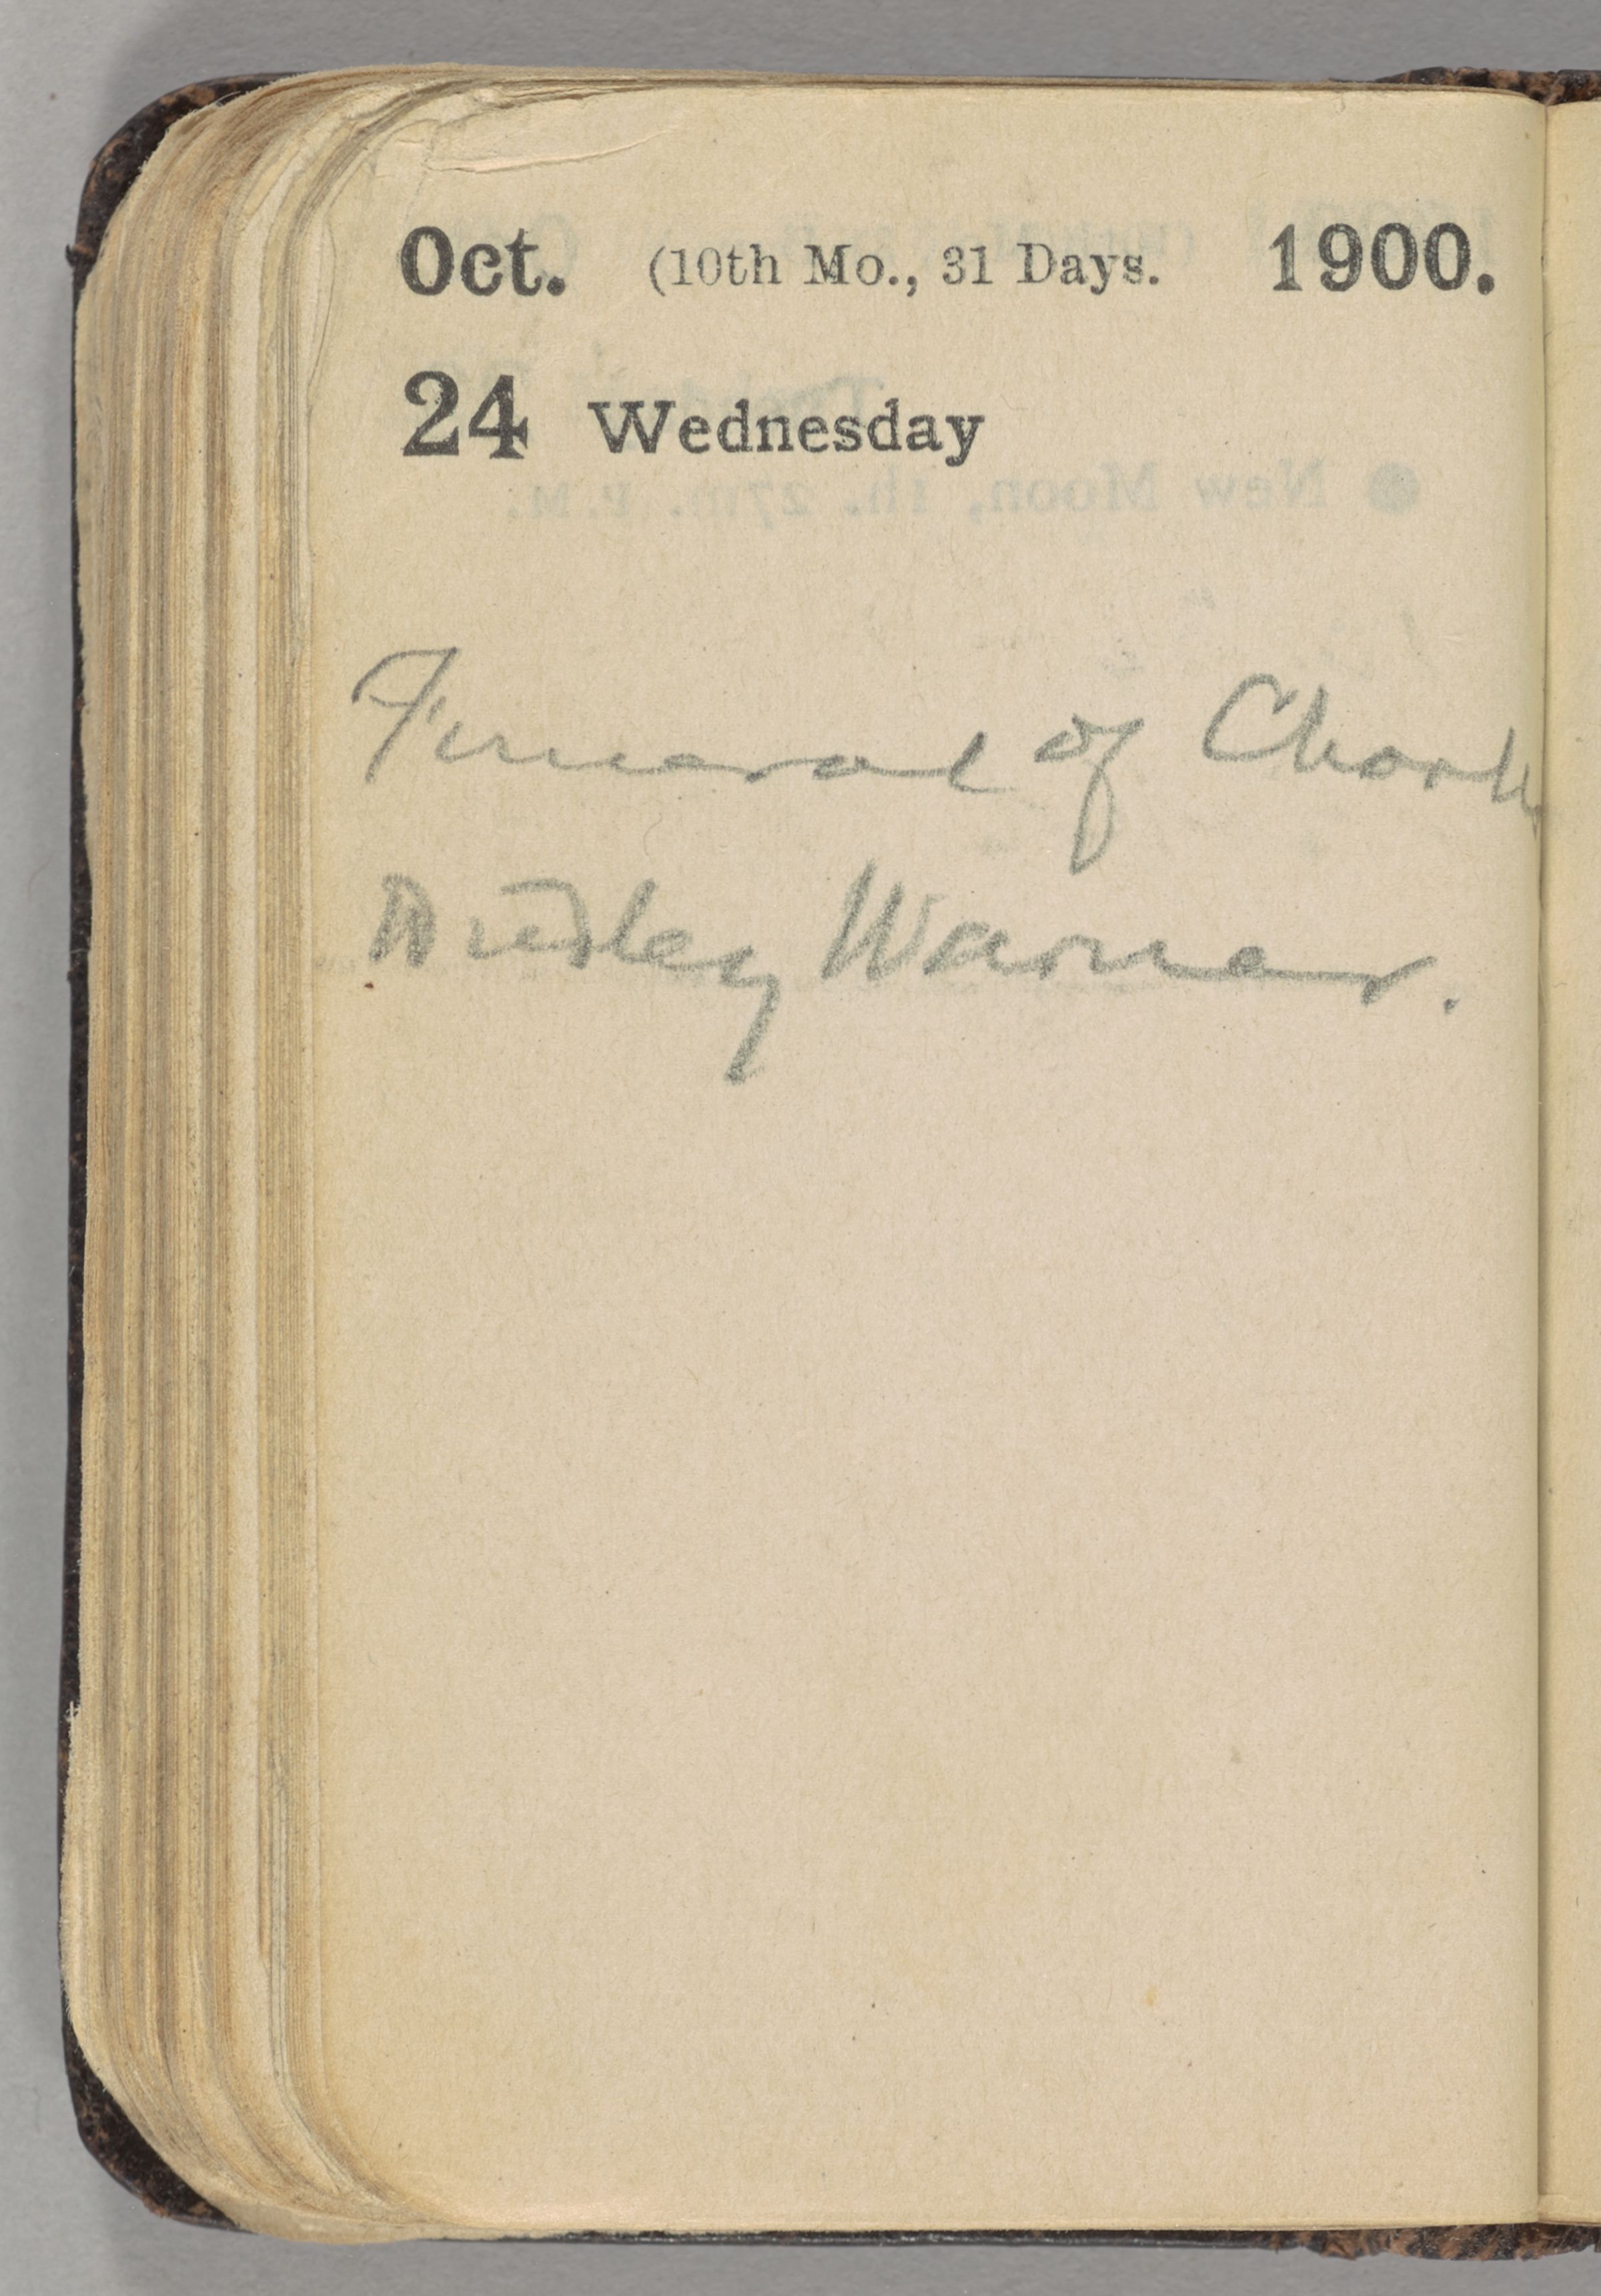 Oct. (10th Mo., 31 Days. 1900.
24 Wednesday
Funeral of Charles
Dudley Warner.